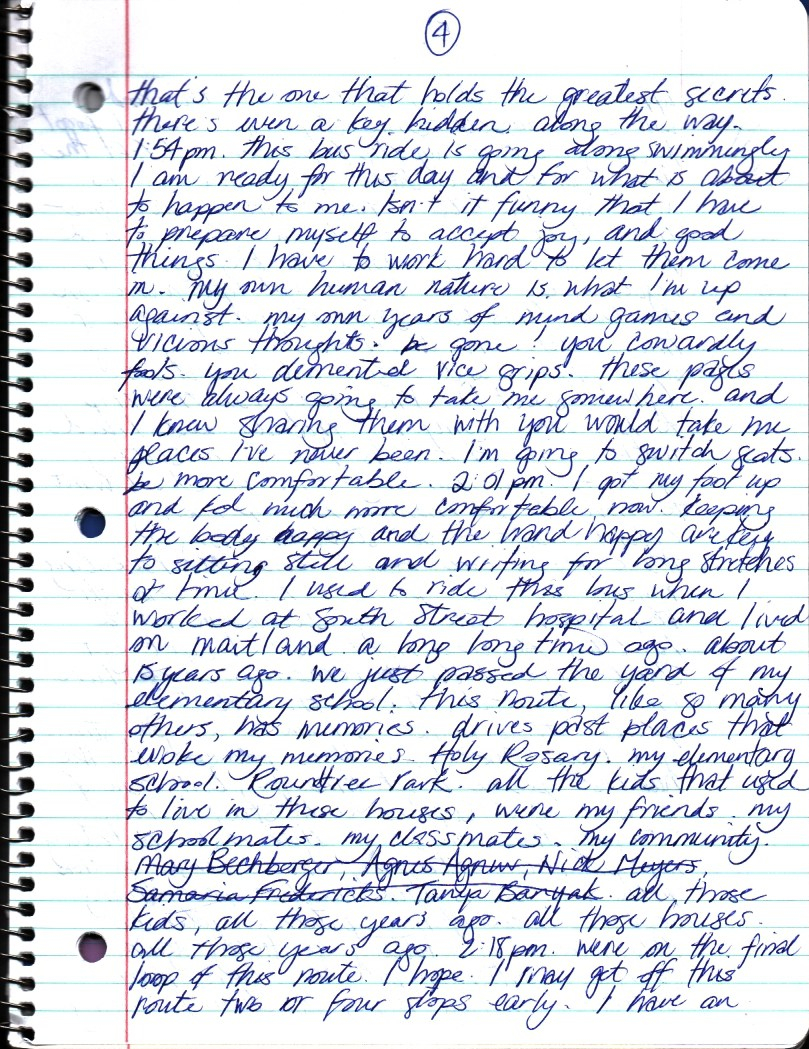 4
that's the one that holds the greatest secrets.
there's even a key hidden along the way.
1:54pm. this bus ride is going along swimmingly
I am ready for this day and for what is about
to happen to me. Isn't it funny that I have
to prepare myself to accept joy, and good
things. I have to work hard to let them come
in. my own human nature is what I'm up
against. my own years of mind games and
vicious thoughts. be gone! you cowardly
fools. you demented vice grips. these pages
were always going to take me somewhere. and
I knew sharing them with you would take me
places I've never been. I'm going to switch seats.
be more comfortable. 2:01pm. I got my foot up
and feel much more comfortable now. keeping
the body happy and the hand happy are key
to sitting still and writing for long stretches
of time. I used to ride this bus when I
worked at South Street hospital and lived
on maitland a long long time ago. about
15 years ago. we just passed the yard of my
elementary school. this route, like so many
others, has memories. drives past places that
evoke my memories. Holy Rosary. my elementary
school. Rowntree Park. all the kids that used
to live in these houses, were my friends. my
schoolmates. my classmates. my community.
Mary Bechberger, Agnes Agnew, Nick Meyers,
Samaria Fredericks. Tanya Banyak. all those
kids, all those years ago. all those houses.
all those years ago. 2:18pm. were on the final
loop of this route. I hope. I may get off this
route two or four stops early. I have an